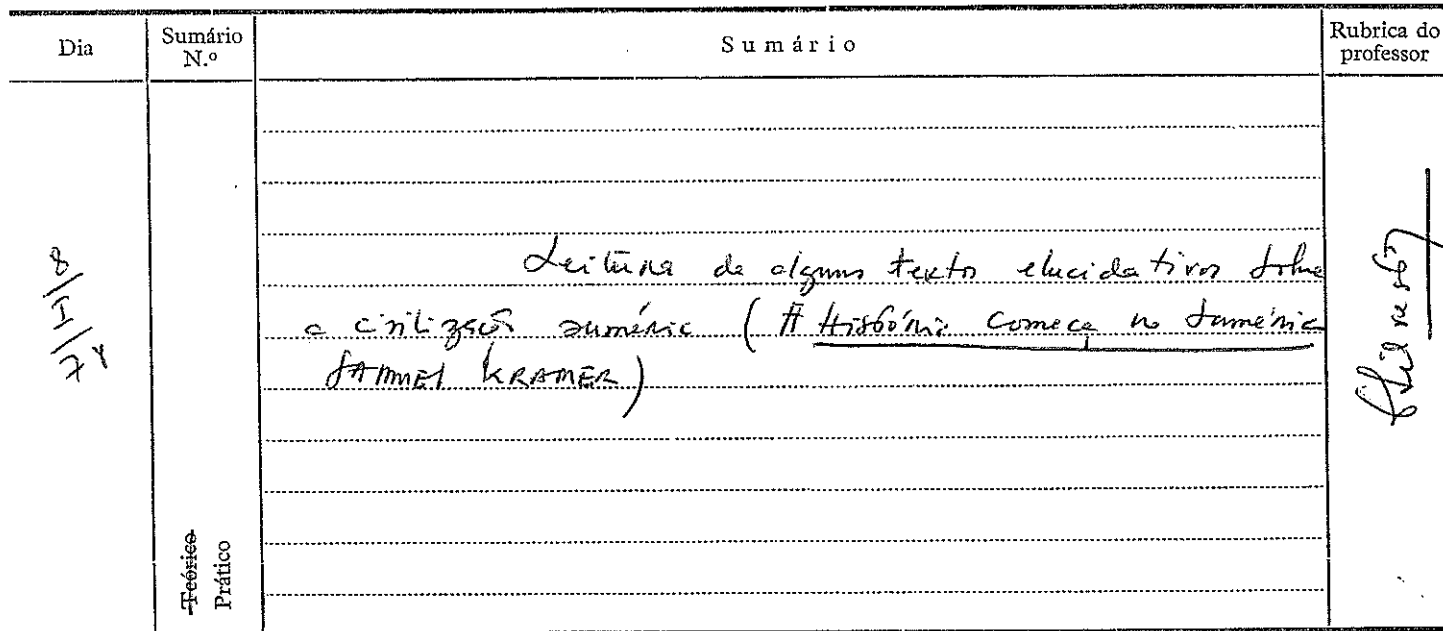 Dia
Sumário N.º
Sumário
Rubrica do professor
8/I/7
Leitura de alguns textos elucidativos sobre
a civilização suméria (A História começa na Suméria
SAMUEL KRAMER)
Teórico
Prático